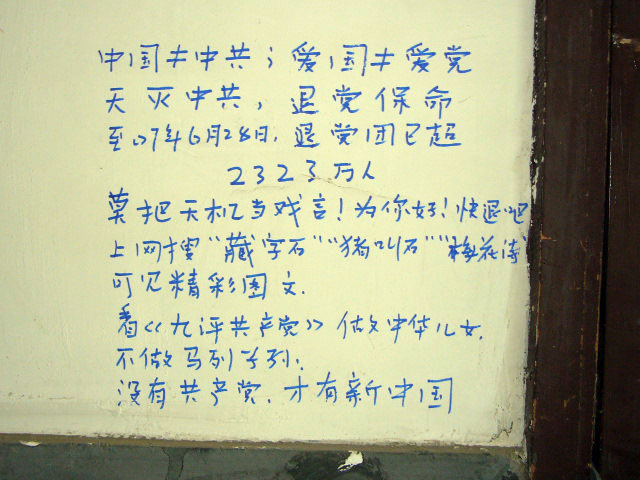 中国≠中共；爱国≠爱党
天灭中共，退党保命
至07年6月28日，退党团已超
2323万人
莫把天机当戏言！为你好！快退吧
上网搜“藏字石”“猪叫石”“梅花诗”
可见精彩图文.
看《九评共产党》做中华儿女.
不做马列子孙.
没有共产党.才有新中国